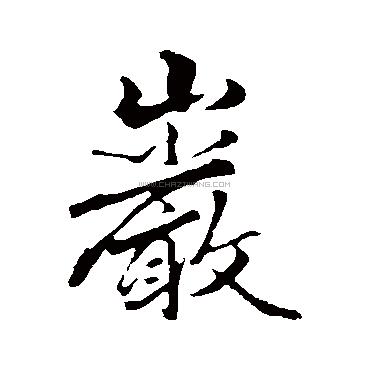 巖
WWW.CHAZIWANG.COM